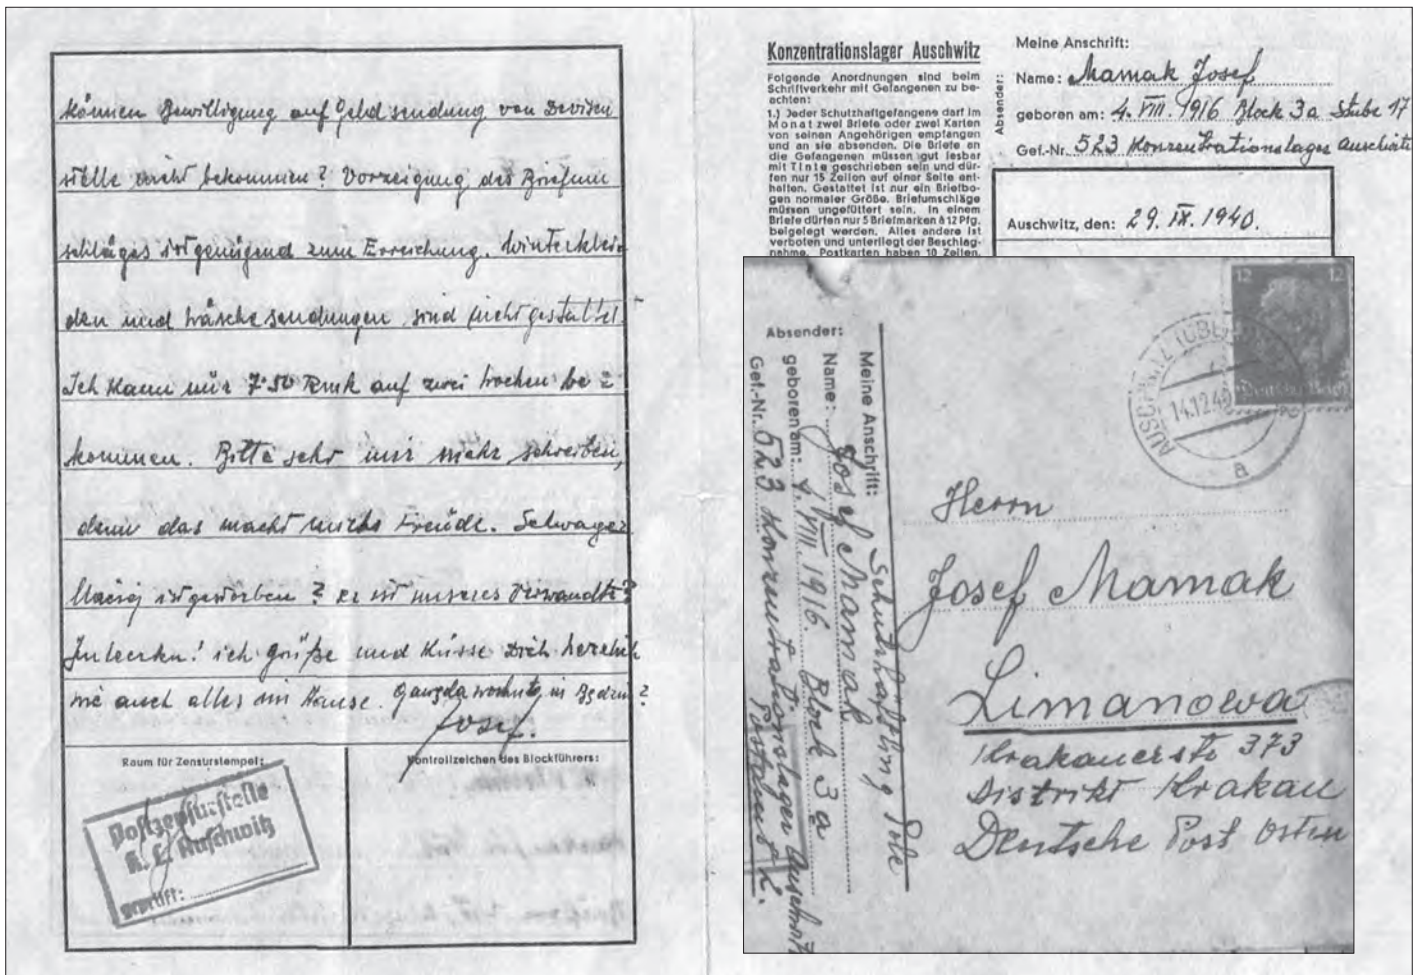 können Bewilligung auf Geldsendung von Devisen
stelle nicht bekommen? Vorzeigung des Briefum
schlages ist genügend zum Erreichung. Winterklei
der und Wäsche sendungen sind nicht gestattet.
Ich kann mir 7·50 Rmk auf zwei Wochen be =
kommen. Bitte sehr mir mehr schreiben,
denn das macht mich Freude. Schwager
Maciej ist gestorben? er ist unseres Verwandte?
ich grüße und Küsse Dich herzlich
wie auch alles im Hause. wohnt in ?
Josef.
Raum für Zensurstempel:
Kontrollzeichen des Blockführers:
Postzensurstelle
K. L. Auschwitz
geprüft:
Konzentrationslager Auschwitz
Folgende Anordnungen sind beim
Schriftverkehr mit Gefangenen zu be-
achten:
1.) Jeder Schutzhaftgefangene darf im
Monat zwei Briefe oder zwei Karten
von seinen Angehörigen empfangen
und an sie absenden. Die Briefe an
die Gefangenen müssen gut lesbar
mit Tinte geschrieben sein und dür-
fen nur 15 Zeilen auf einer Seite ent-
halten. Gestattet ist nur ein Briefbo-
gen normaler Größe. Briefumschläge
müssen ungefüttert sein. In einem
Briefe dürfen nur 5 Briefmarken à 12 Pfg.
beigelegt werden. Alles andere ist
verboten und unterliegt der Beschlag-
nahme. Postkarten haben 10 Zeilen.
Absender:
Meine Anschrift:
Name: Mamak Josef
geboren am: 4. VIII. 1916 Block 3a Stube 17
Gef.-Nr. 523 Konzentrationslager Auschwitz
Auschwitz, den: 29. IX. 1940.
Absender:
Meine Anschrift: Schutzhäftling Pole
Name: Josef Mamak
geboren am: 4. VIII. 1916. Block 3a
Gef.-Nr. 523 Konzentrationslager Auschwitz
Postamt 2.
12 12
Deutsches Reich
14.12.40
a
Herrn
Josef Mamak
Limanowa
Krakauerstr 373
Distrikt Krakau
Deutsche Post Osten